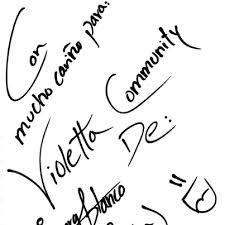 Con
mucho cariño para:
Violetta Community
De::
Blanco